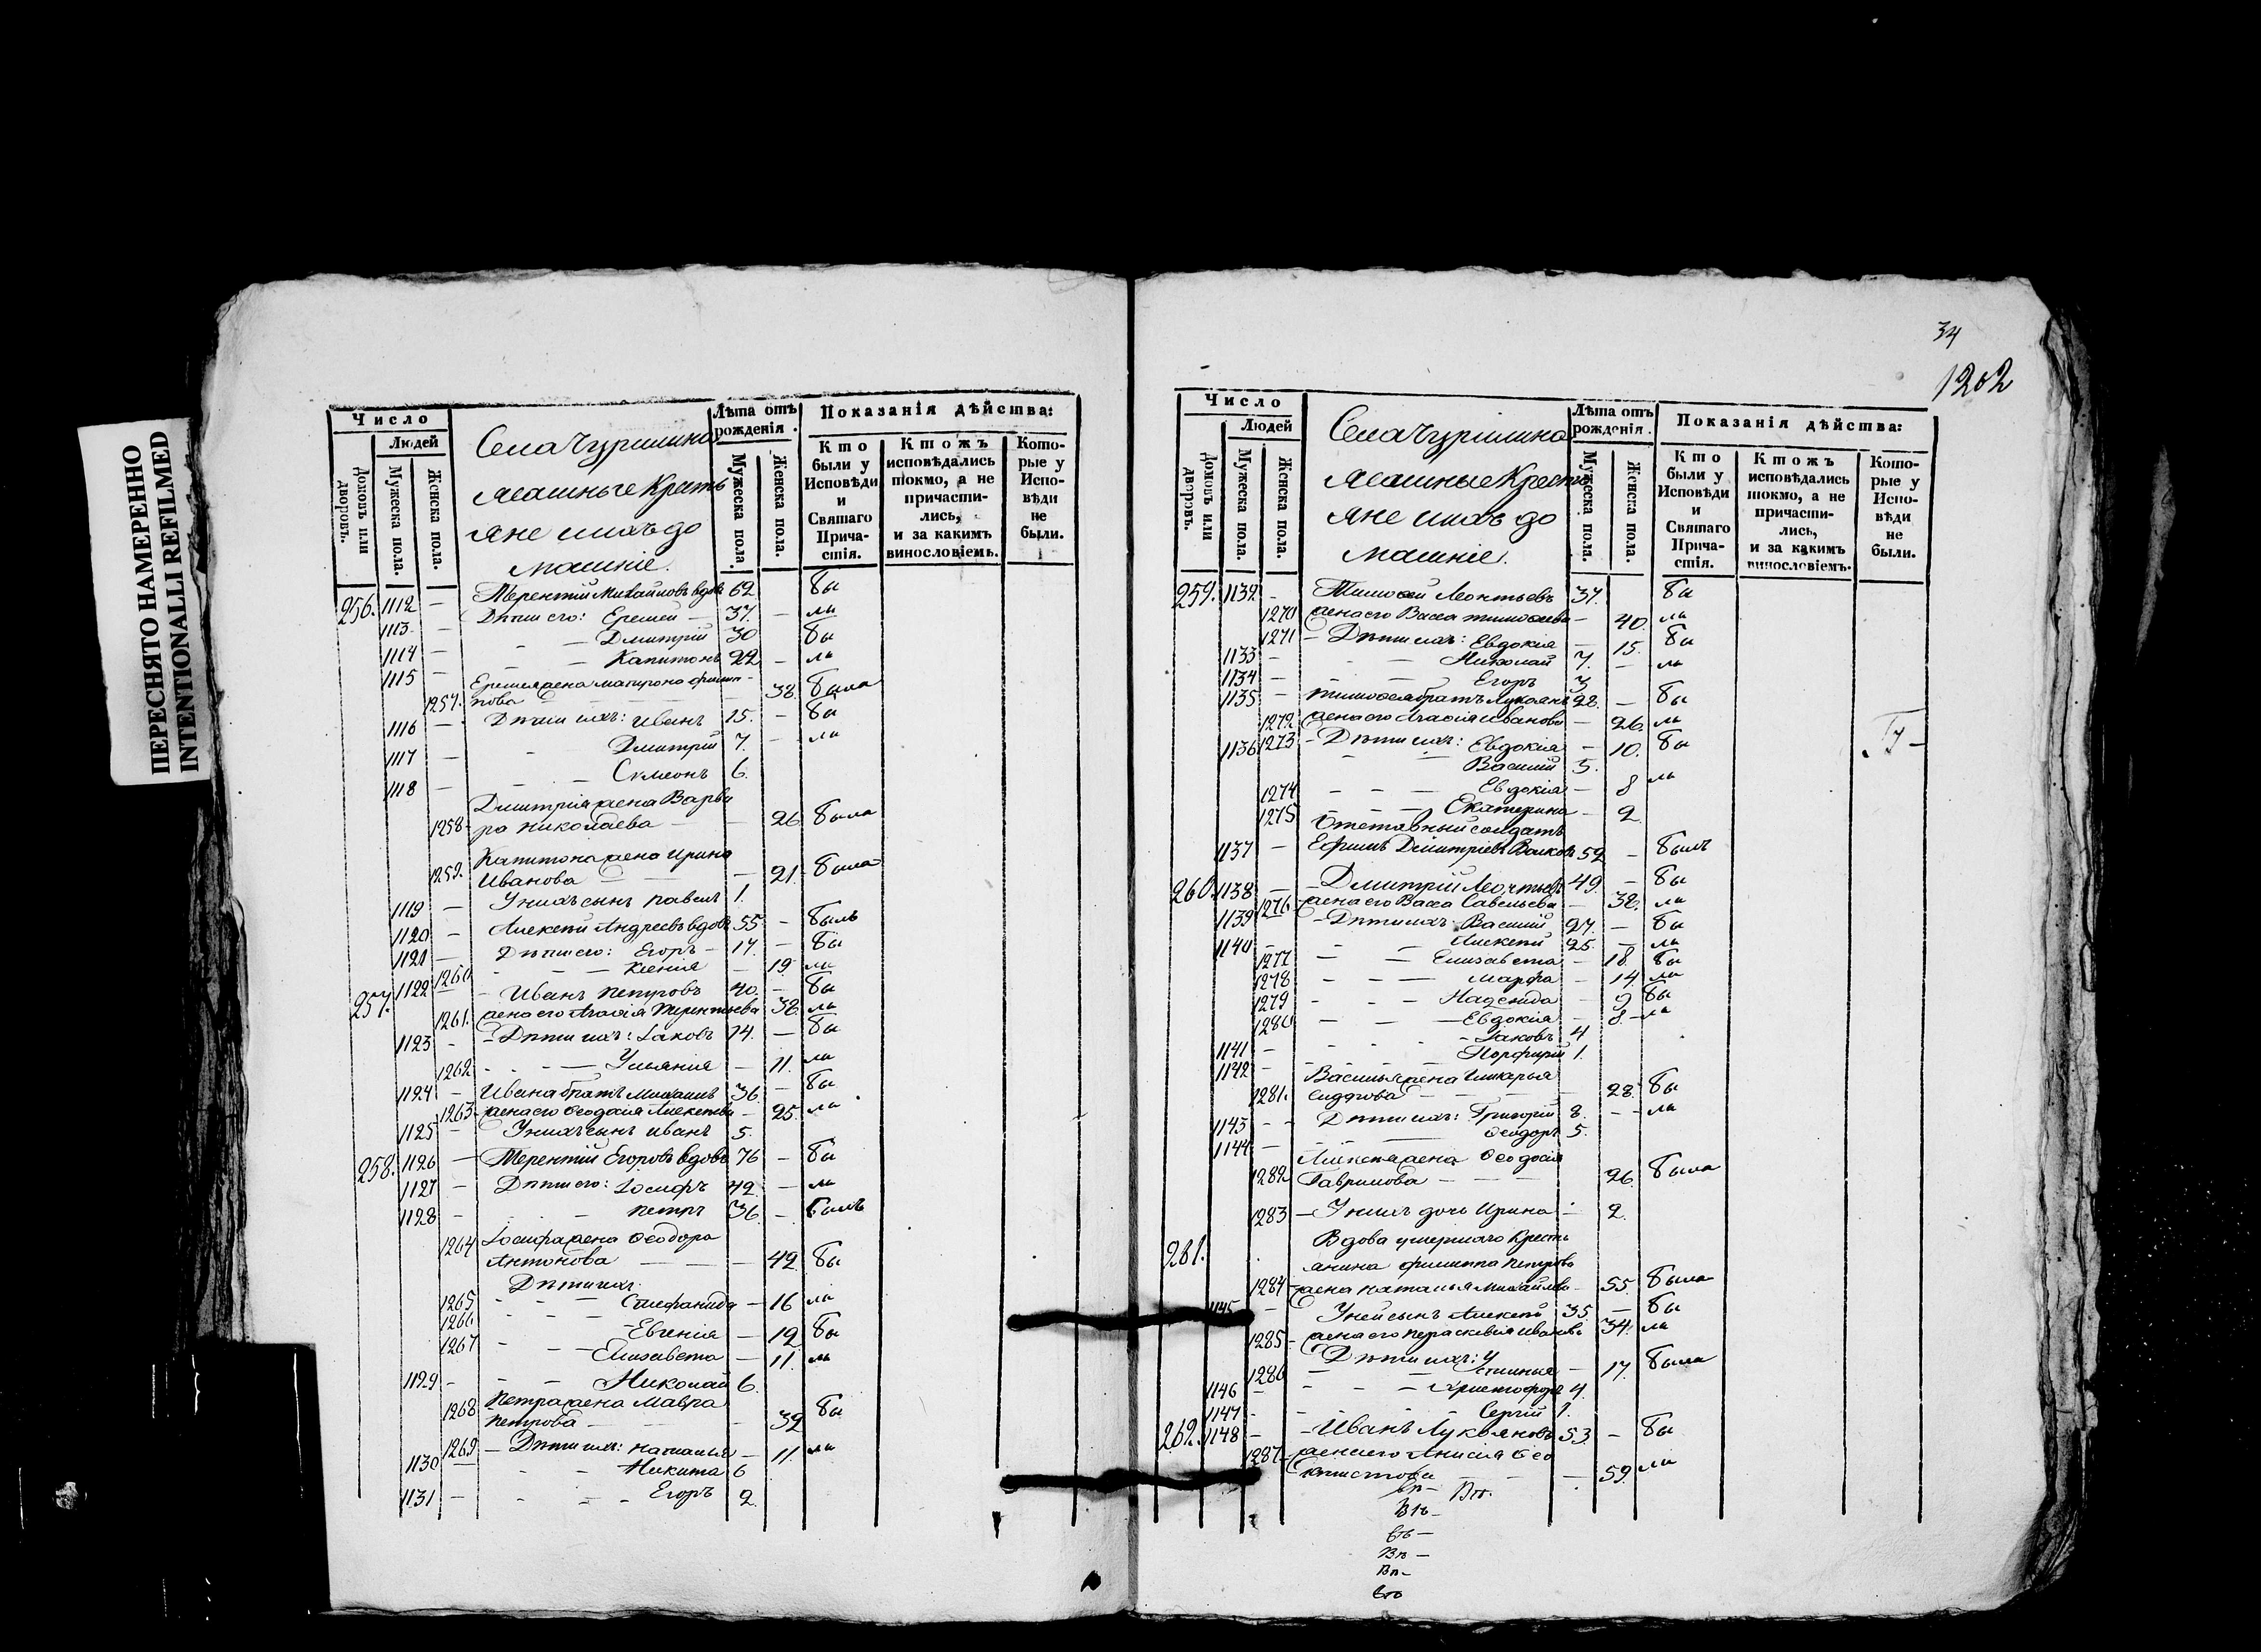 ПЕРЕСНЯТО НАМЕРЕННО
INTENTIONALLI REFILMED
Число
Людей
Домовъ или дворовъ.
Мужеска пола.
Женска пола.
Села Чуришино
ясашные Кресть
яне ихъ до
машніе.
Лѣта отъ рожденія.
Мужеска пола.
Женска пола.
Показанія дѣйства:
Кто были у Исповѣди и Святаго Прича-стія.
Ктожъ исповѣдались токмо, а не причасти-лись, и за какимъ винословіемъ.
Кото-рые у Испо-вѣди не были.
256. 1112 — Терентій Михайловъ вдовъ 62 бы
1113 — Дѣти его: Еремей — 37. — ли
1114 — Дмитрій 30 бы
1115 — Капитонъ 22 — ли
Еремея жена Матрона Филип-
1257. пова — 38. была
1116 — Дѣти ихъ: Иванъ 15. — бы
1117 — Дмитрій 7. — ли
1118 — Симеонъ 6.
Дмитрія жена Варва
1258 ра Николаева — 26 была
Капитона жена Ирина
1259. Иванова — 21. была
1119 — У нихъ сынъ Павелъ 1.
1120 — Алексѣй Андреевъ вдовъ 55 — былъ
1121 — Дѣти его: Егоръ — 17. — бы
1260 — Ксенія — 19. ли
257. 1122 — Иванъ Петровъ 40. — бы
1261. жена его Агафія Терентьева 38. ли
1123 — Дѣти ихъ: Іаковъ 14. — бы
1262 — Ульянія — 11. ли
1124 — Ивана братъ Михаилъ 36. — бы
1263 жена его Феодосія Алексѣева — 25. ли
1125 — У нихъ сынъ Иванъ 5.
258. 1126 — Терентій Егоровъ вдовъ 76 — бы
1127 — Дѣти его: Іосифъ 42. — ли
1128 — Петръ 36. — былъ
1264 Іосифа жена Феодора
Антонова — 42. бы
Дѣти ихъ:
1265 — Стефанида — 16 ли
1266 — Евгенія — 12 бы
1267 — Елисавета — 11. ли
1129 — Николай 6.
1268 Петра жена Мавра
Петрова — 32 бы
1269 — Дѣти ихъ: Наталья — 11. ли
1130 — Никита 6
1131 — Егоръ 2.
34
1202
Число
Людей
Домовъ или дворовъ.
Мужеска пола.
Женска пола.
Села Чуришино
ясашные Кресть
яне ихъ до
машніе.
Лѣта отъ рожденія.
Мужеска пола.
Женска пола.
Показанія дѣйства:
Кто были у Исповѣди и Святаго Прича-стія.
Ктожъ исповѣдались токмо, а не причасти-лись, и за какимъ винословіемъ.
Кото-рые у Испо-вѣди не были.
259. 1132 — Тимофей Леонтьевъ 37. бы
1270 жена его Васса Тимофеева — 40. ли
1271 — Дѣти ихъ: Евдокія — 15. бы
1133 — Николай 7. — ли
1134 — Егоръ 3
1135 — Тимофея братъ Лукоянъ 28. — бы
1272 жена его Агафія Иванова — 26. ли
1136 1273 — Дѣти ихъ: Евдокія — 10. бы
Василій 5.
1274 — Евдокія — 8 ли
1275 — Екатерина — 2.
Отставный солдатъ
1137 — Ефимъ Димитріевъ Волковъ 52 — былъ
260. 1138 — Дмитрій Леонтьевъ 49. — бы
1276 жена его Васса Савельева — 38. ли
1139 — Дѣти ихъ: Василій 27. — бы
1140 — Алексѣй 25. — ли
1277 — Елисавета — 18. бы
1278 — Марфа — 14. ли
1279 — Надежда — 9 бы
1280 — Евдокія — 8. ли
1141 — Іаковъ 4
1142 — Порфирій 1.
Василья жена Гликерья
1281. Сидорова — 28. бы
1143 — Дѣти ихъ: Григорій 8. — ли
1144 — Феодоръ 5.
Алексѣя жена Феодосія
1282 Гаврилова — 26. была
1283 — У нихъ дочь Ирина — 2.
261. Вдова умершаго Кресть
янина Филиппа Петрова
1284 жена Наталья Михайлова — 55. была
1145 — У ней сынъ Алексѣй 35. — бы
1285 — жена его Параскевія Иванова 34. ли
Дѣти ихъ: У
1286 — стинья — 17. была
1146 — Христофоръ 4.
1147 — Сергій 1.
262. 1148 — Иванъ Лукояновъ 53. — бы
1287 — жена его Анисія Фео
ктистова — 59. ли